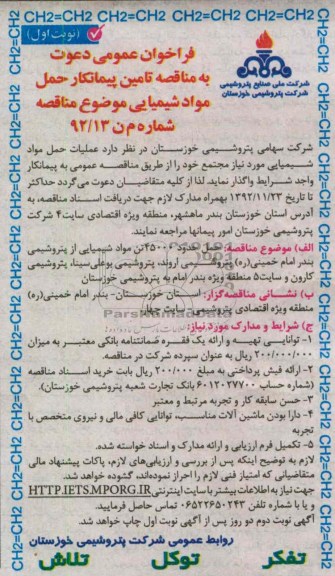 (نوبت اول)
فراخوان عمومی دعوت
به مناقصه تامین پیمانکار حمل
مواد شیمیایی موضوع مناقصه
شماره م ن ۹۲/۱۳
شرکت ملی صنایع پتروشیمی
شرکت پتروشیمی خوزستان
شرکت سهامی پتروشیمی خوزستان در نظر دارد عملیات حمل مواد
شیمیایی مورد نیاز مجتمع خود را از طریق مناقصه عمومی به پیمانکار
واجد شرایط واگذار نماید. لذا از کلیه متقاضیان دعوت می‌گردد حداکثر
تا تاریخ ۱۳۹۲/۱۱/۲۳ بهمراه مدارک لازم جهت دریافت اسناد مناقصه، به
آدرس استان خوزستان بندر ماهشهر، منطقه ویژه اقتصادی سایت۴ شرکت
پتروشیمی خوزستان امور پیمانها مراجعه نمایند.
الف) موضوع مناقصه: حمل حدود ۴۵۰۰۰تن مواد شیمیایی از پتروشیمی
بندر امام خمینی(ره) پتروشیمی اروند، پتروشیمی بوعلی‌سینا، پتروشیمی
کارون و سایت۵ منطقه ویژه بندر امام به پتروشیمی خوزستان
ب) نشانی مناقصه‌گزار: استان خوزستان- بندر امام خمینی(ره)
منطقه ویژه اقتصادی پتروشیمی سایت چهار
ParsNamadData
ج) شرایط و مدارک مورد نیاز:
۱- توانایی تهیه و ارائه یک فقره ضمانتنامه بانکی معتبر به میزان
۲۰۰/۰۰۰/۰۰۰ ریال به عنوان سپرده شرکت در مناقصه.
۲- ارائه فیش پرداختی به مبلغ ۲۰۰/۰۰۰ ریال بابت خرید اسناد مناقصه
(شماره حساب ۶۰۱۲۰۲۷۷۰۰ بانک تجارت شعبه پتروشیمی خوزستان).
۳- حسن سابقه کار و تجربه مرتبط و معتبر
۴- دارا بودن ماشین آلات مناسب، توانایی کافی مالی و نیروی متخصص با
تجربه
۵- تکمیل فرم ارزیابی و ارائه مدارک و اسناد خواسته شده.
لازم به توضیح اینکه پس از بررسی و ارزیابی‌های لازم، پاکات پیشنهاد مالی
متقاضیانی که امتیاز فنی لازم را احراز نموده‌اند، گشوده خواهد شد.
جهت نیاز به اطلاعات بیشتر با سایت اینترنتی HTTP.IETS.MPORG.IR
و یا با شماره تلفن ۰۶۵۲۲۶۵۰۲۴۳ تماس حاصل فرمایید.
آگهی نوبت دوم دو روز پس از آگهی نوبت اول چاپ خواهد شد.
روابط عمومی شرکت پتروشیمی خوزستان
تفکر توکل تلاش
CH2=CH2 CH2=CH2 CH2=CH2 CH2=CH2 CH2=CH2